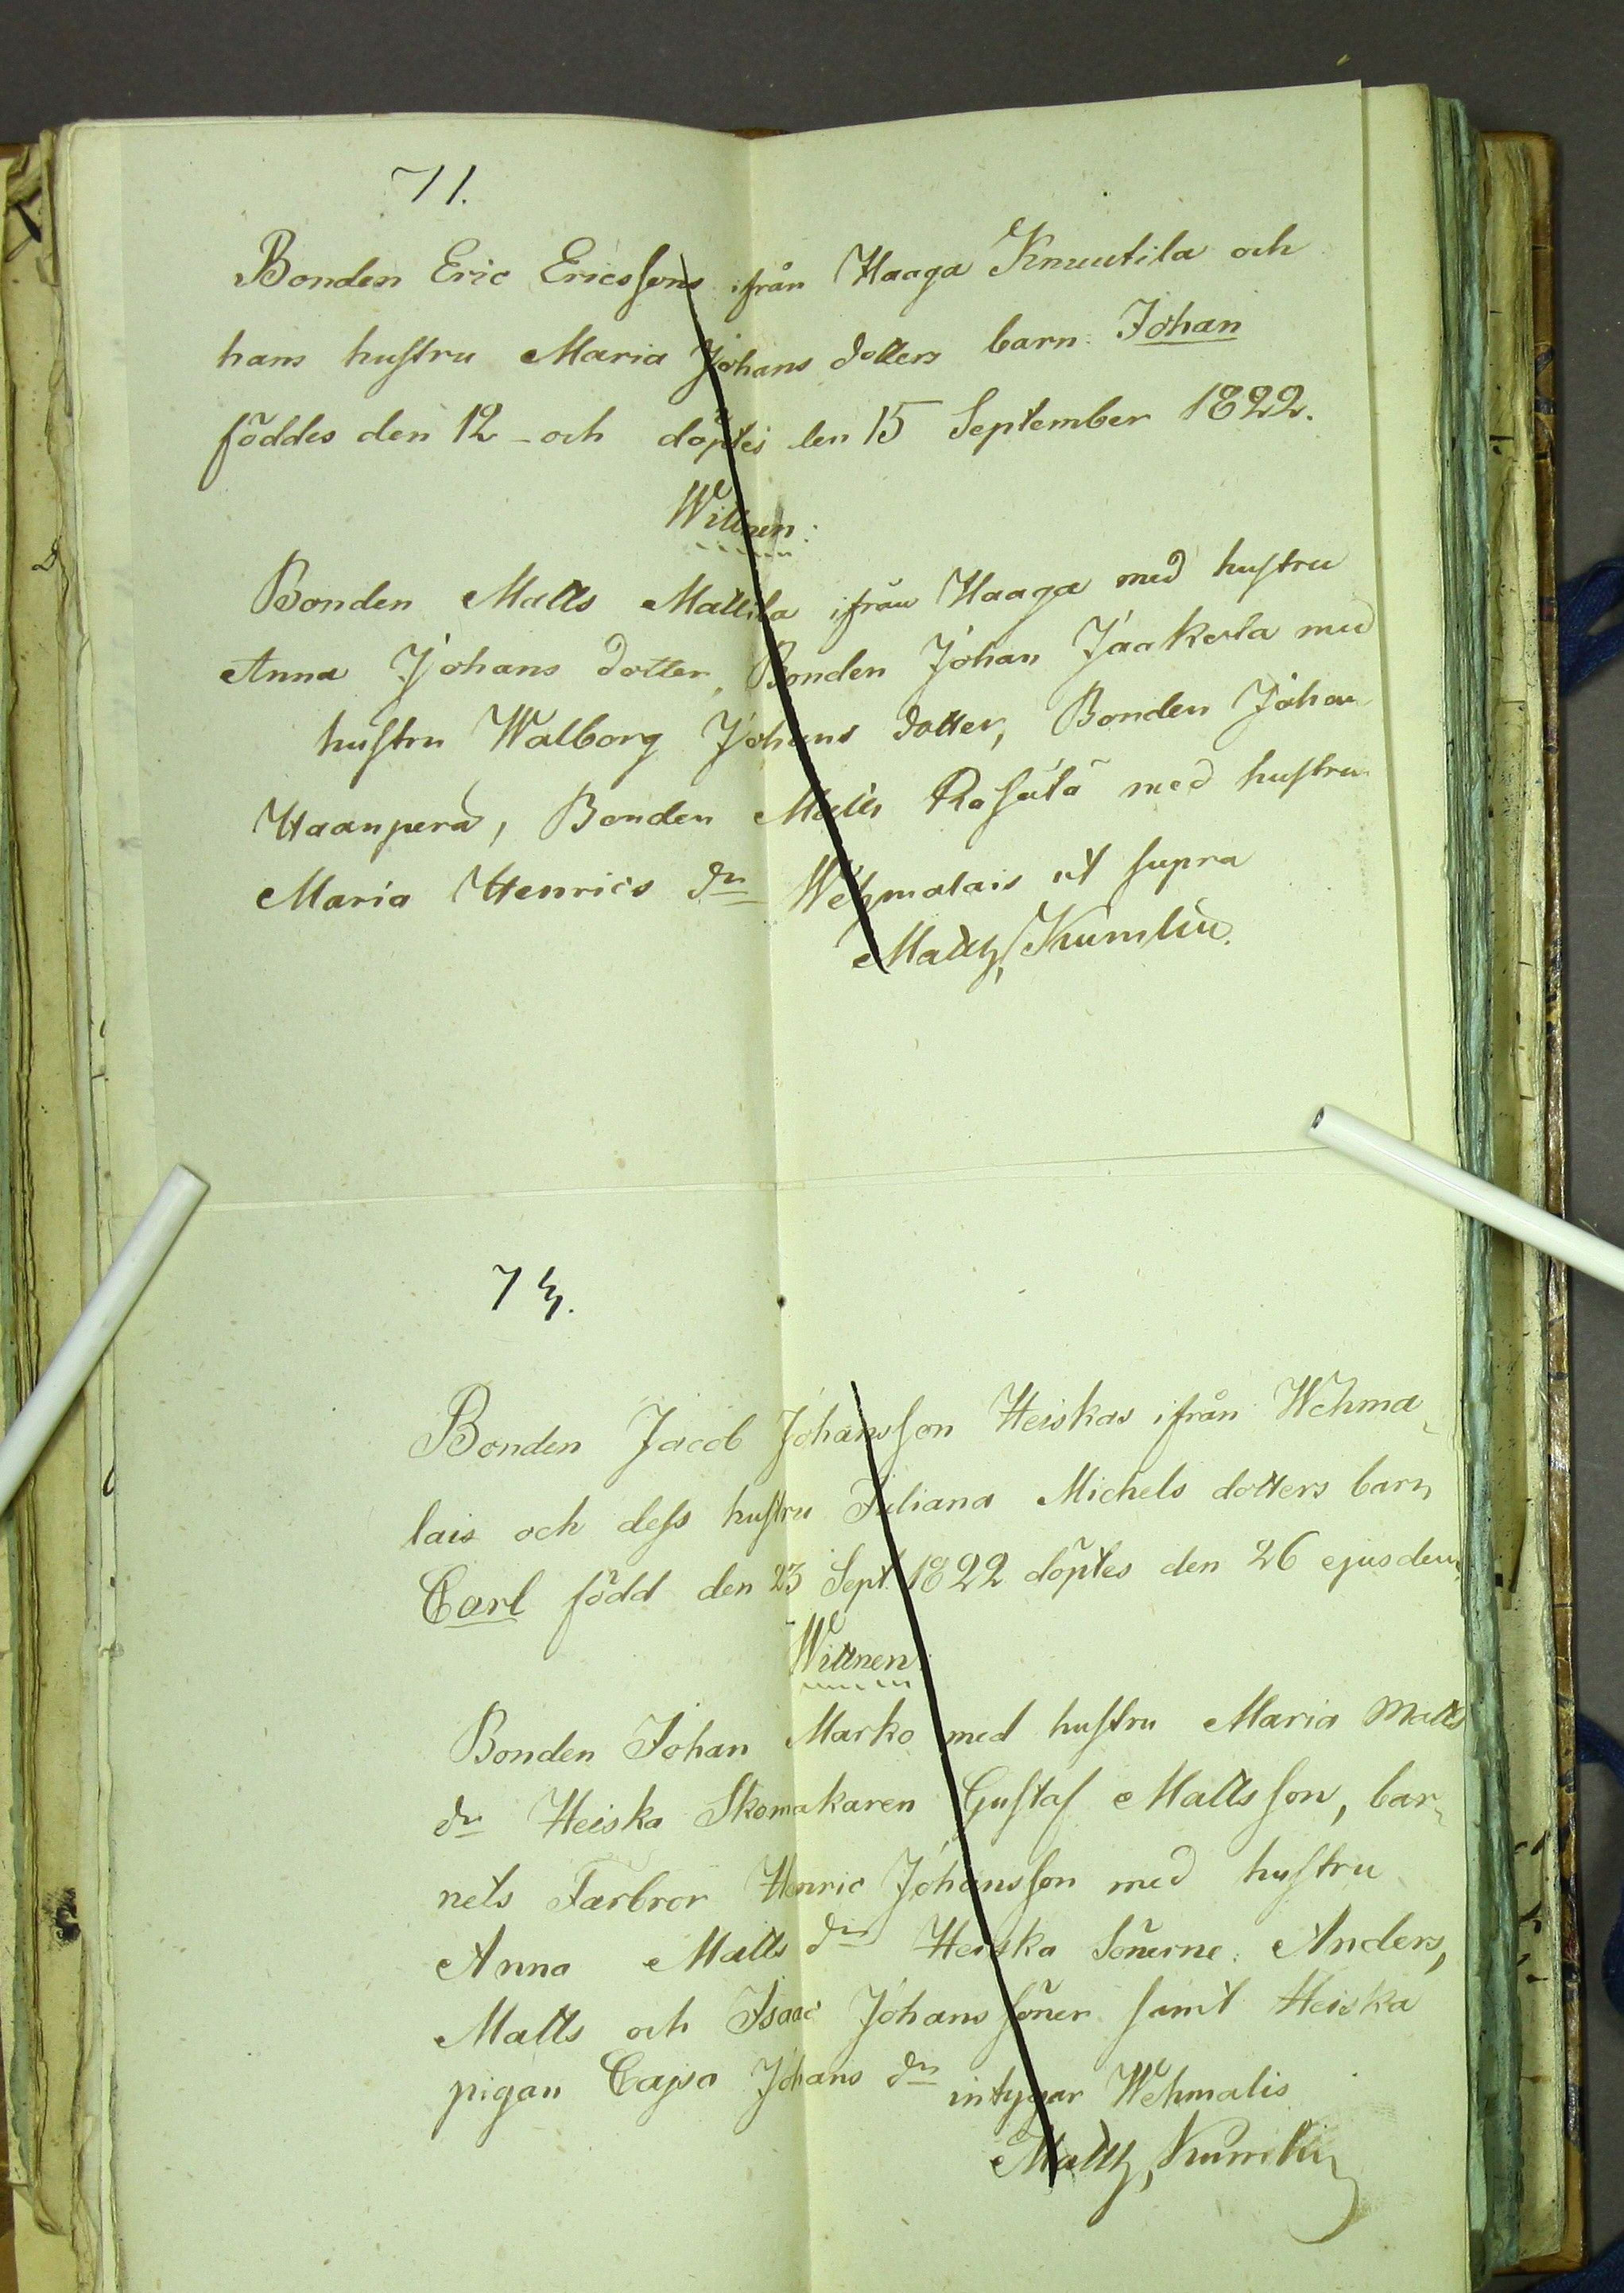 71.
Bonden Eric Ericssons ifrån Haaga Knuutila och
hans hustru Maria Johans dotters barn: Johan
föddes den 12 - och döptes den 15 September 1822.
Wittnen:
Bonden Matts Mattila ifrån Haaga med hustru
Anna Johans dotter, Bonden Johan Jaakola med
hustru Walborg Johans dotter, Bonden Johan
Haanperä, Bonden Matts Rasätä med hustru
Maria Henrics dr Wehmalais ut supra
Matth, Kumlin.
Bonden Jacob Johansson Heiskas ifrån Wehma-
lais och dess hustru Juliana Michels dotters barn
Carl född den 23 Sept. 1822 döptes den 26 ejusdem.
Wittnen
Bonden Johan Marko med hustru Maria Matts
dr Heiska Skomakaren Gustaf Mattsson, bar-
nets Farbror Henric Johansson med hustru
Anna Matts dr Heiska Sönerne: Anders,
Matts och Isaac Johans söner samt Heiska
pigan Cajsa Johans dr intygar Wehmalis
Matth, Kumlin